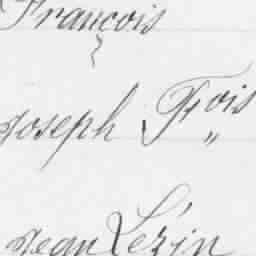 François
Joseph Fois
Jean Lézin